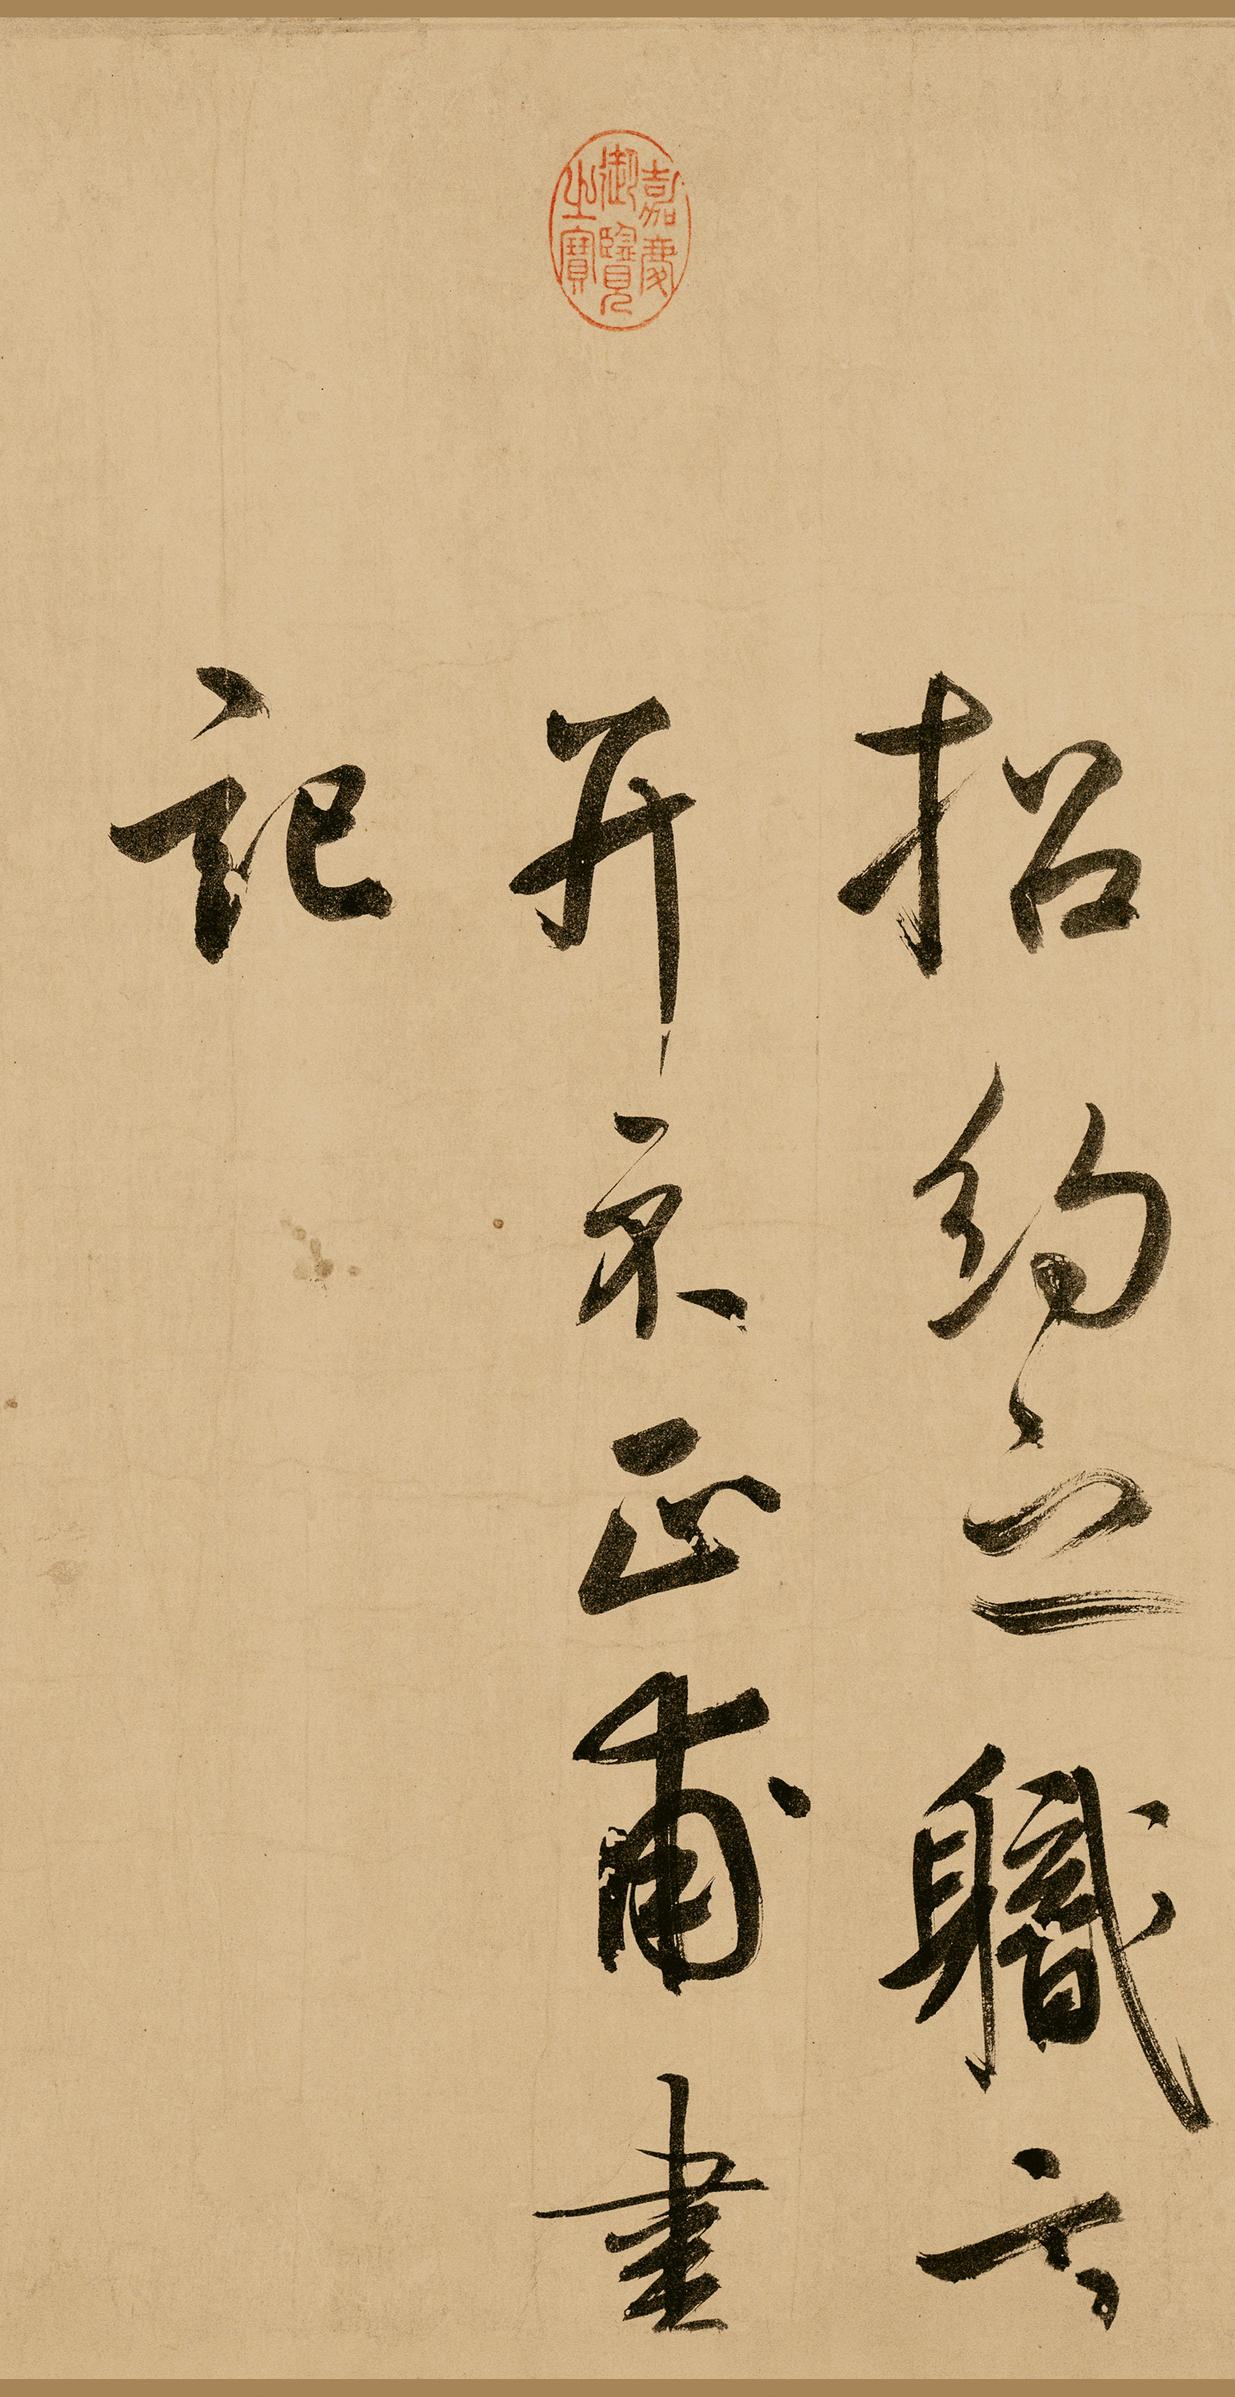 招約之職方
并示正甫書
記
嘉慶
御覽
之寶